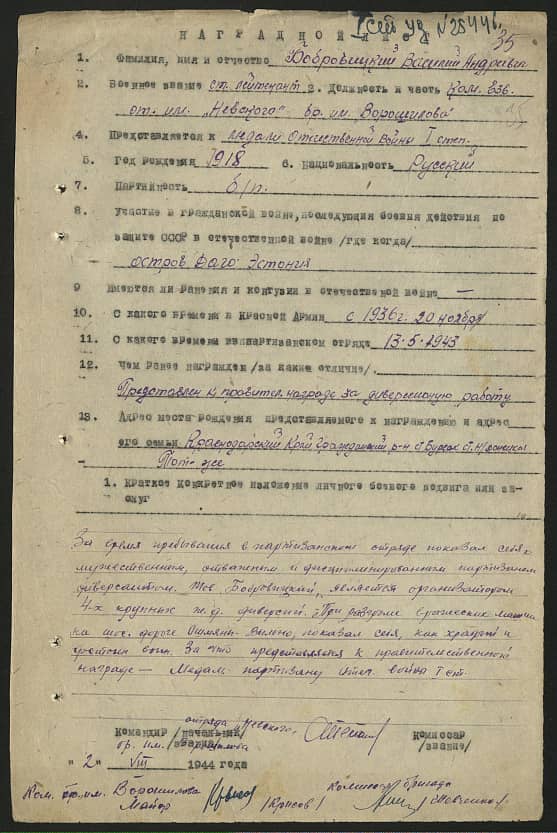 I сет уд №25446
35
НАГРАДНОЙ ЛИСТ
1. Фамилия, имя и отчество Бобровицкий Василий Андреевич
2. Военное звание ст. лейтенант 3. Должность и часть Ком.
от. им. „Невского" бр. им. Ворошилова
4. Представляется к медали Отечественной Войны I степ.
5. Год рождения 1918 6. Национальность Русский
7. Партийность б/п.
8. Участие в гражданской войне, последующия боевыя действия по
защите СССР в отечественной войне /где когда/
остров Даго Эстония
9 Имеются ли ранения и контузии в отечественной войне —
10. С какого времени в Красной Армии с 1936г. 20 ноября
11. С какого времени в партизанском отряде 13-5-1943
12. Чем ранее награжден /за какие отличие/.
Представлен к правител. награде за диверсионную работу
13. Адрес места рождения представляемого к награждению и адрес
его семьи Краснодарский Край р-н с.
Тот-же
1. Краткое конкретное изложение личного боевого подвига или за-
слуг
За время пребывания в партизанском отряде показал себя
мужественным, отважным и дисциплинированным партизаном
диверсантом. Тов. Бобровицкий, является организатором
4-х крупных ж.д. диверсий. При разгроме вражеских машин
на шос. дороге Ошмяны-Вильно, показал себя, как храбрый и
воин. За что представляется к правительственной
награде — Медаль партизану Отеч. войны I ст.
отряда Невского,
Командир /начальник/ Комиссар
бр. им. Ворошилова /звание/ /звание/
" 2 " VIII 1944 года
Ком. бр. им. Ворошилова Комиссар бригады
Майор